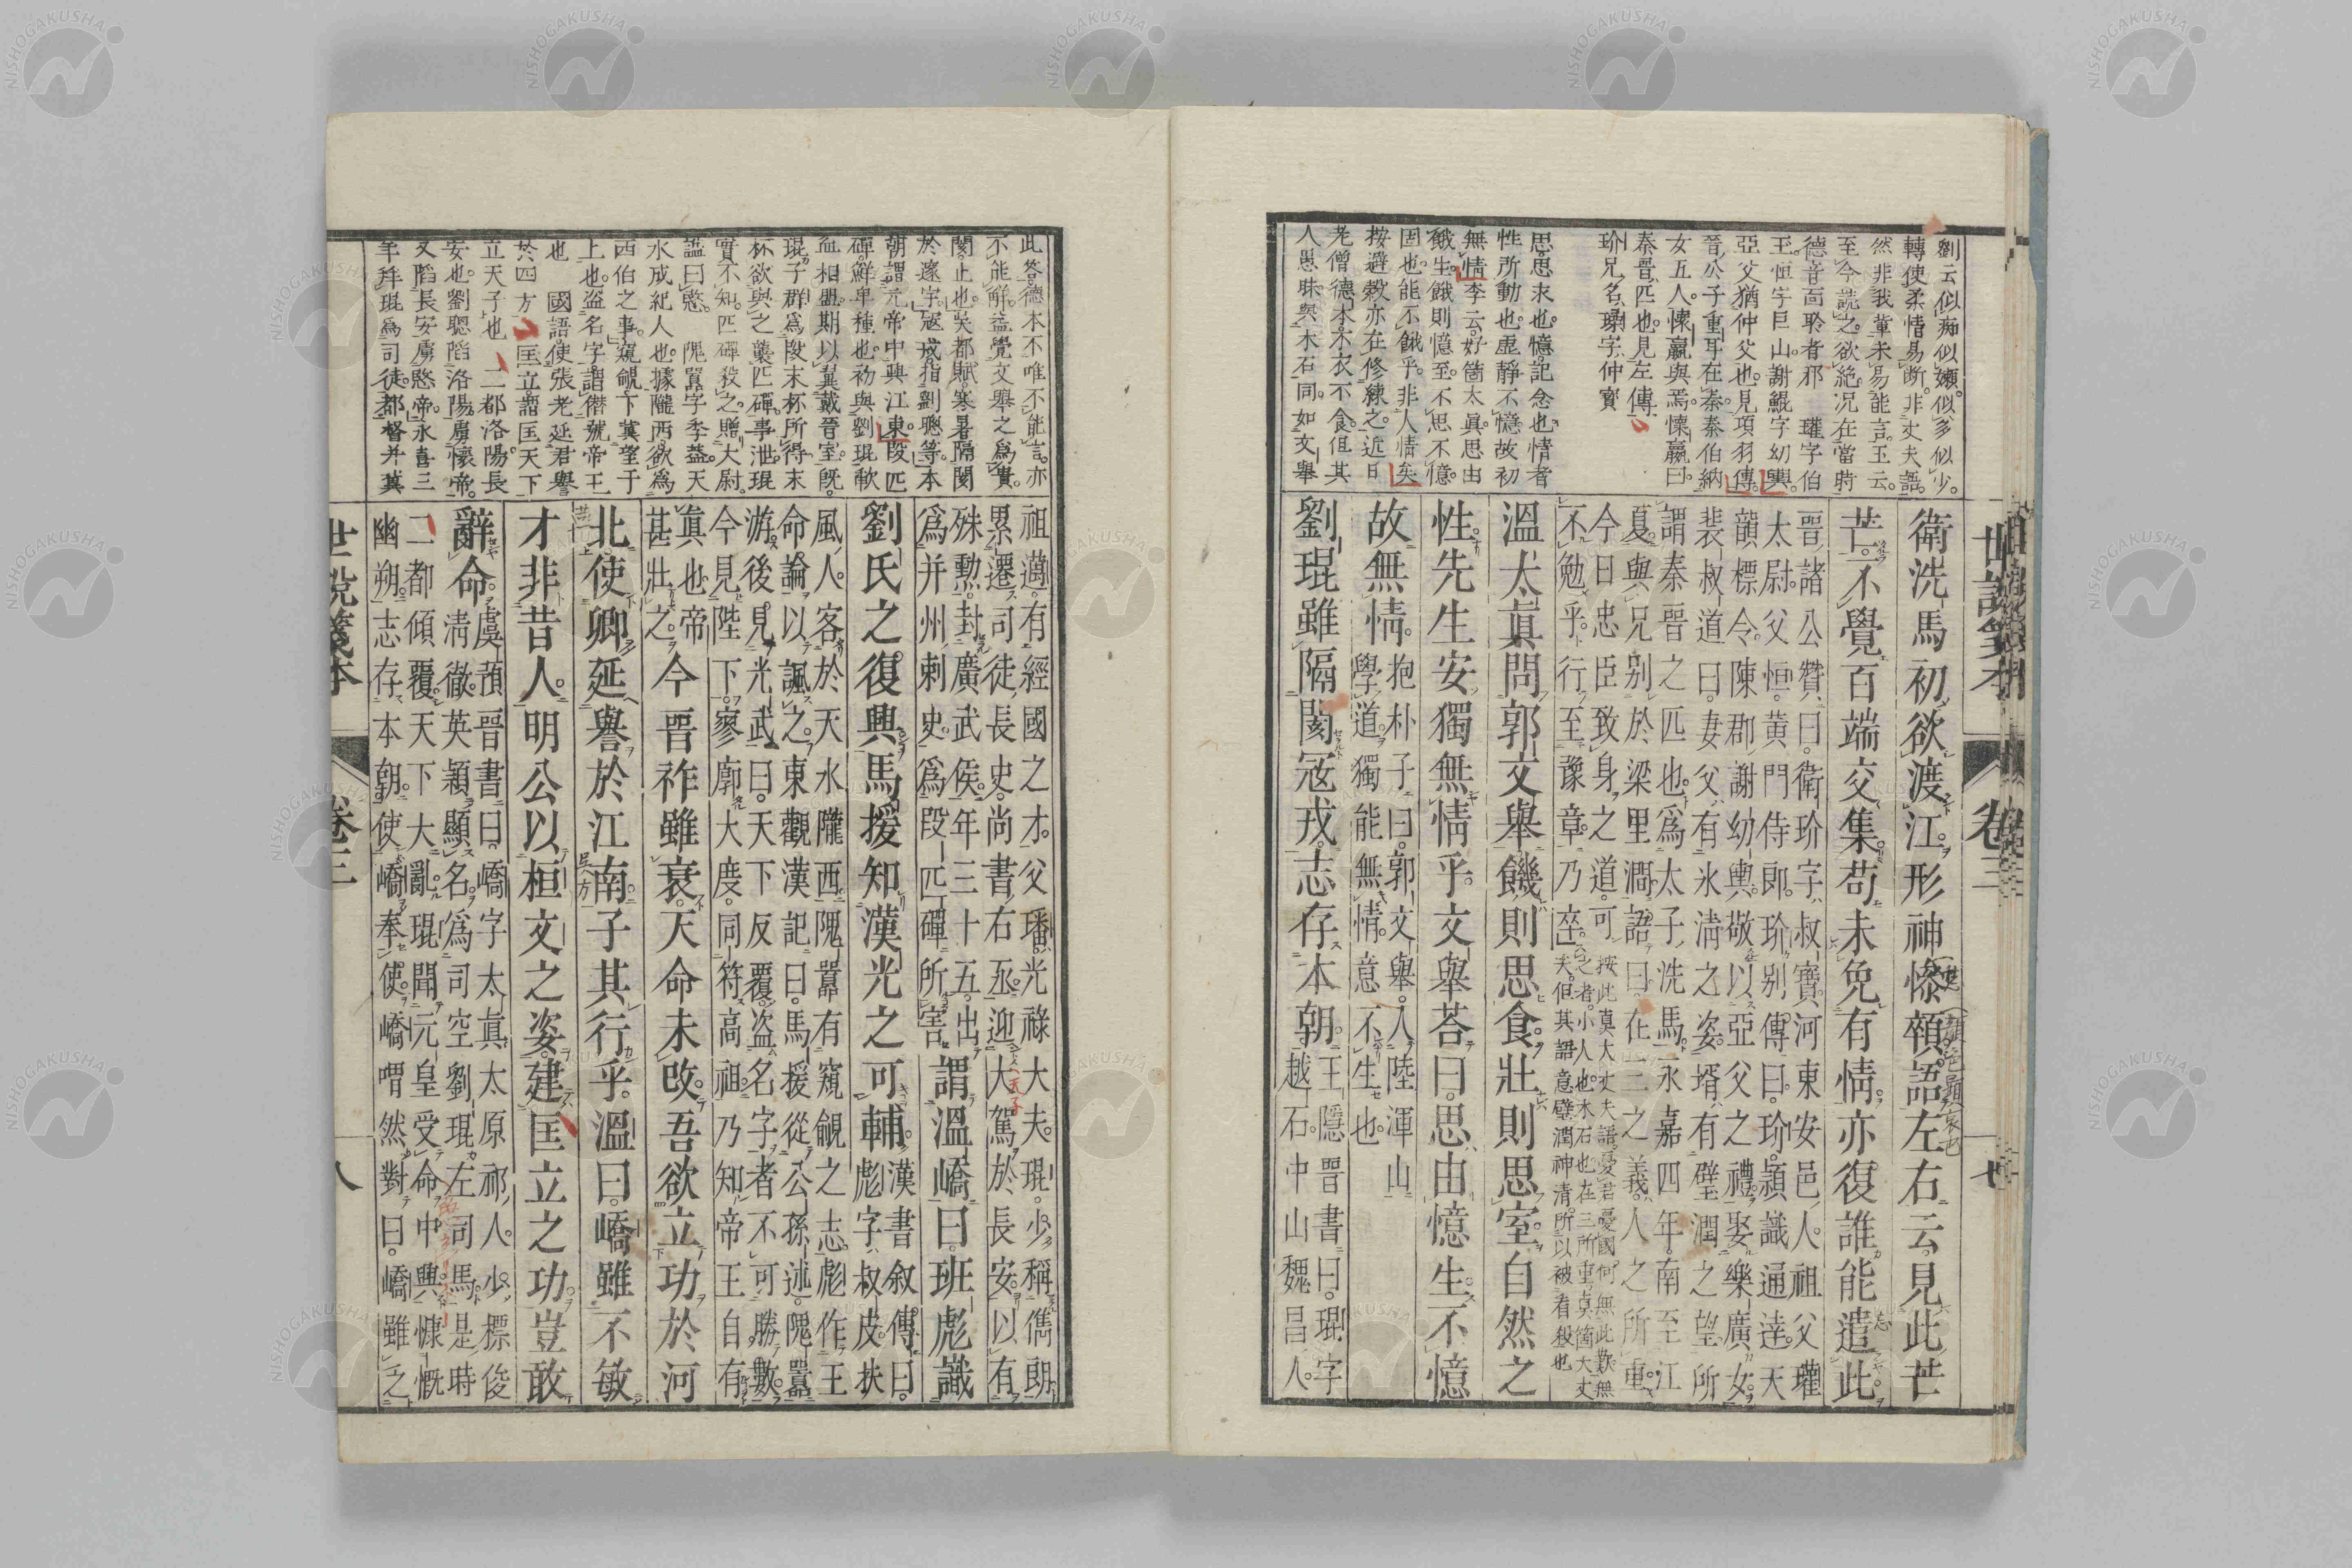 劉云似痴似嬾似多似少
轉使柔情易斷非丈夫語
然非我輩未易能言王云
至今読之欲絶况在當時
德音啇聆者邪 瓘字伯
玉恒字巨山謝鯤字幼輿
亞父猶仲父也見項羽傳
晉公子重耳在秦秦伯納
女五人懷嬴與焉懷嬴曰
秦晋匹也見左傳
玠兄名璪字仲寳
思思求也憶記念也情者
性所動也虛靜不憶故初
無情李云好箇太眞思由
餓生餓則憶至不思不憶
固也能不餓乎非人情矣
按避穀亦在修練之近日
老僧德本不衣不食但其
人愚昧與木石同如文舉
世説箋本 卷三 七
衛洗馬初欲渡江形神慘顇語左右云見此芒
芒不覺百端交集苟未免有情亦復誰能遣此
晋諸公贊曰衛玠字叔寳河東安邑人祖父瓘
太尉父恒黃門侍郎玠別傳曰玠穎識通達天
韻標令陳郡謝幼輿敬以亞父之禮娶樂廣女
裴叔道曰妻父有氷清之姿壻有璧潤之望所
謂秦晋之匹也爲太子洗馬永嘉四年南至江
夏與兄別於梁里澗語曰在三之義人之所重
今日忠臣致身之道可
不勉乎行至豫章乃卒
按此莫大丈夫語憂君憂國何無此歎無
之者小人也木石也在三所重眞箇大丈
夫但其語意璧潤神清所以被看殺也
溫太眞問郭文舉饑則思食壯則思室自然之
性先生安獨無情乎文舉荅曰思由憶生不憶
故無情
抱朴子曰郭文舉入陸渾山
學道獨能無情意不生也
劉琨雖隔閡冦戎志存本朝
王隱晋書曰琨字
越石中山魏昌人
此答德本不唯不能言亦
不能解益覺文舉之爲貴
閡止也吳都賦寒暑隔閡
於邃宇冦戎指劉聰等本
朝謂元帝中興江東段匹
磾鮮卑種也初與劉琨歃
血相盟期以翼戴晉室旣
琨子群爲段末杯所得末
杯欲與之襲匹磾事泄琨
實不知匹磾殺之贈大尉
諡曰愍 隗囂字季孟天
水成紀人也據隴西欲爲
西伯之事窺覦下冀望于
上也盗名字謂僭號帝王
也 國語使張老延君譽
於四方 匡立謂匡天下
立天子也 二都洛陽長
安也劉聰陷洛陽虜懷帝
又陷長安虜愍帝永喜三
年拜琨爲司徒都督并冀
祖邁有經國之才父璠光祿大夫琨少稱儁朗
累遷司徒長史尚書右丞迎大駕於長安以有
殊勲封廣武侯年三十五出
爲并州刺史爲段匹磾所害
謂溫嶠曰班彪識
劉氏之復興馬援知漢光之可輔
漢書叙傳曰
彪字叔皮扶
風人客於天水隴西隗囂有窺覦之志彪作王
命論以諷之東觀漢記曰馬援從公孫述隗囂
游後見光武曰天下反覆盗名字者不可勝數
今見陛下寥廓大度同符高祖乃知帝王自有
眞也帝
甚壯之
今晋祚雖衰天命未改吾欲立功於河
北使卿延譽於江南子其行乎溫曰嶠雖不敏
才非昔人明公以桓文之姿建匡立之功豈敢
辭命
虞預晋書曰嶠字太眞太原祁人少標俊
清徹英穎顯名爲司空劉琨左司馬是時
二都傾覆天下大亂琨聞元皇受命中興慷慨
幽朔志存本朝使嶠奉使嶠喟然對曰嶠雖乏
世説箋本 卷三 八
NISHOGAKUSHA